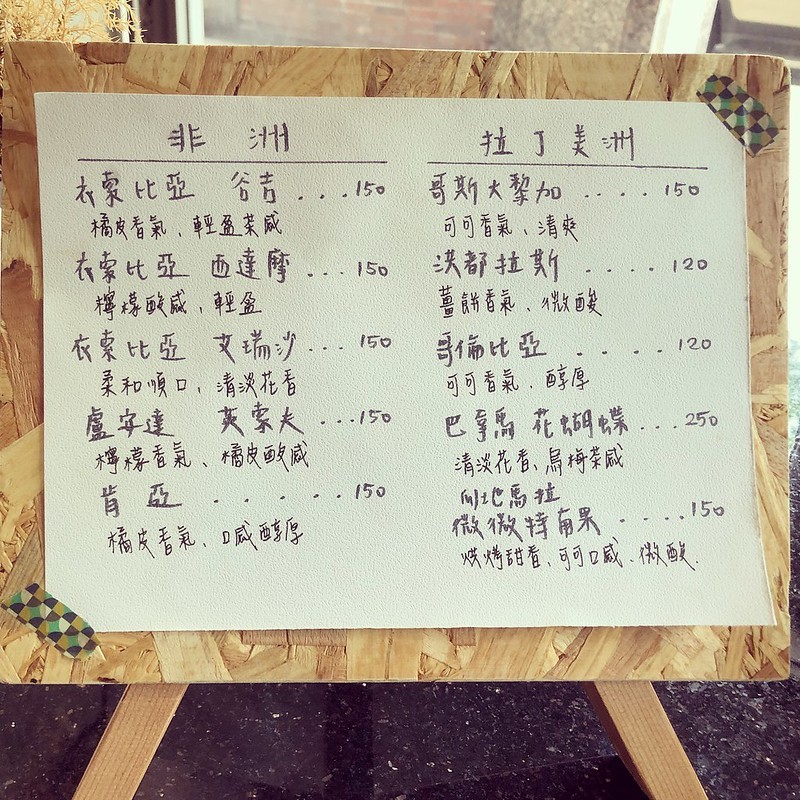 非洲
衣索比亞 谷吉 ...150
橘皮香氣、輕盈茶感
衣索比亞 西達摩 ...150
檸檬酸感、輕盈
衣索比亞 艾瑞沙 ...150
柔和順口、清淡花香
盧安達 英索夫 ...150
檸檬香氣、橘皮酸感
肯亞 .....150
橘皮香氣、口感醇厚
拉丁美洲
哥斯大黎加 ....150
可可香氣、清爽
洪都拉斯 ....120
薑餅香氣、微酸
哥倫比亞 ....120
可可香氣、醇厚
巴拿馬 花蝴蝶 ...250
清淡花香、烏梅茶感
瓜地馬拉
微微特南果 ....150
烘烤甜香、可可口感、微酸.